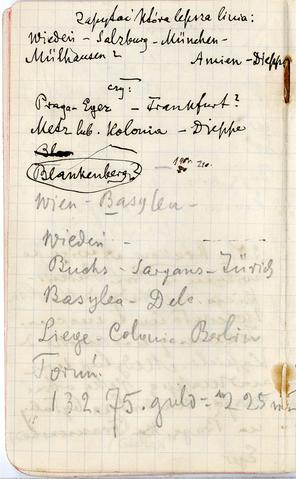 Zapytać która lepsza linia:
Wiedeń - Salzburg - München -
Mülhausen? Amien - Dieppe
czy:
Praga - Eger - Frankfurt?
Metz lub. Kolonia - Dieppe
Bla
Blankenberg?
Wien - Basylea -
Wiedeń -
Buchs - Sargans - Zürich
Basylea - Dele
Liege - Colonia - Berlin
Toruń.
132. 75. guld = 225 m